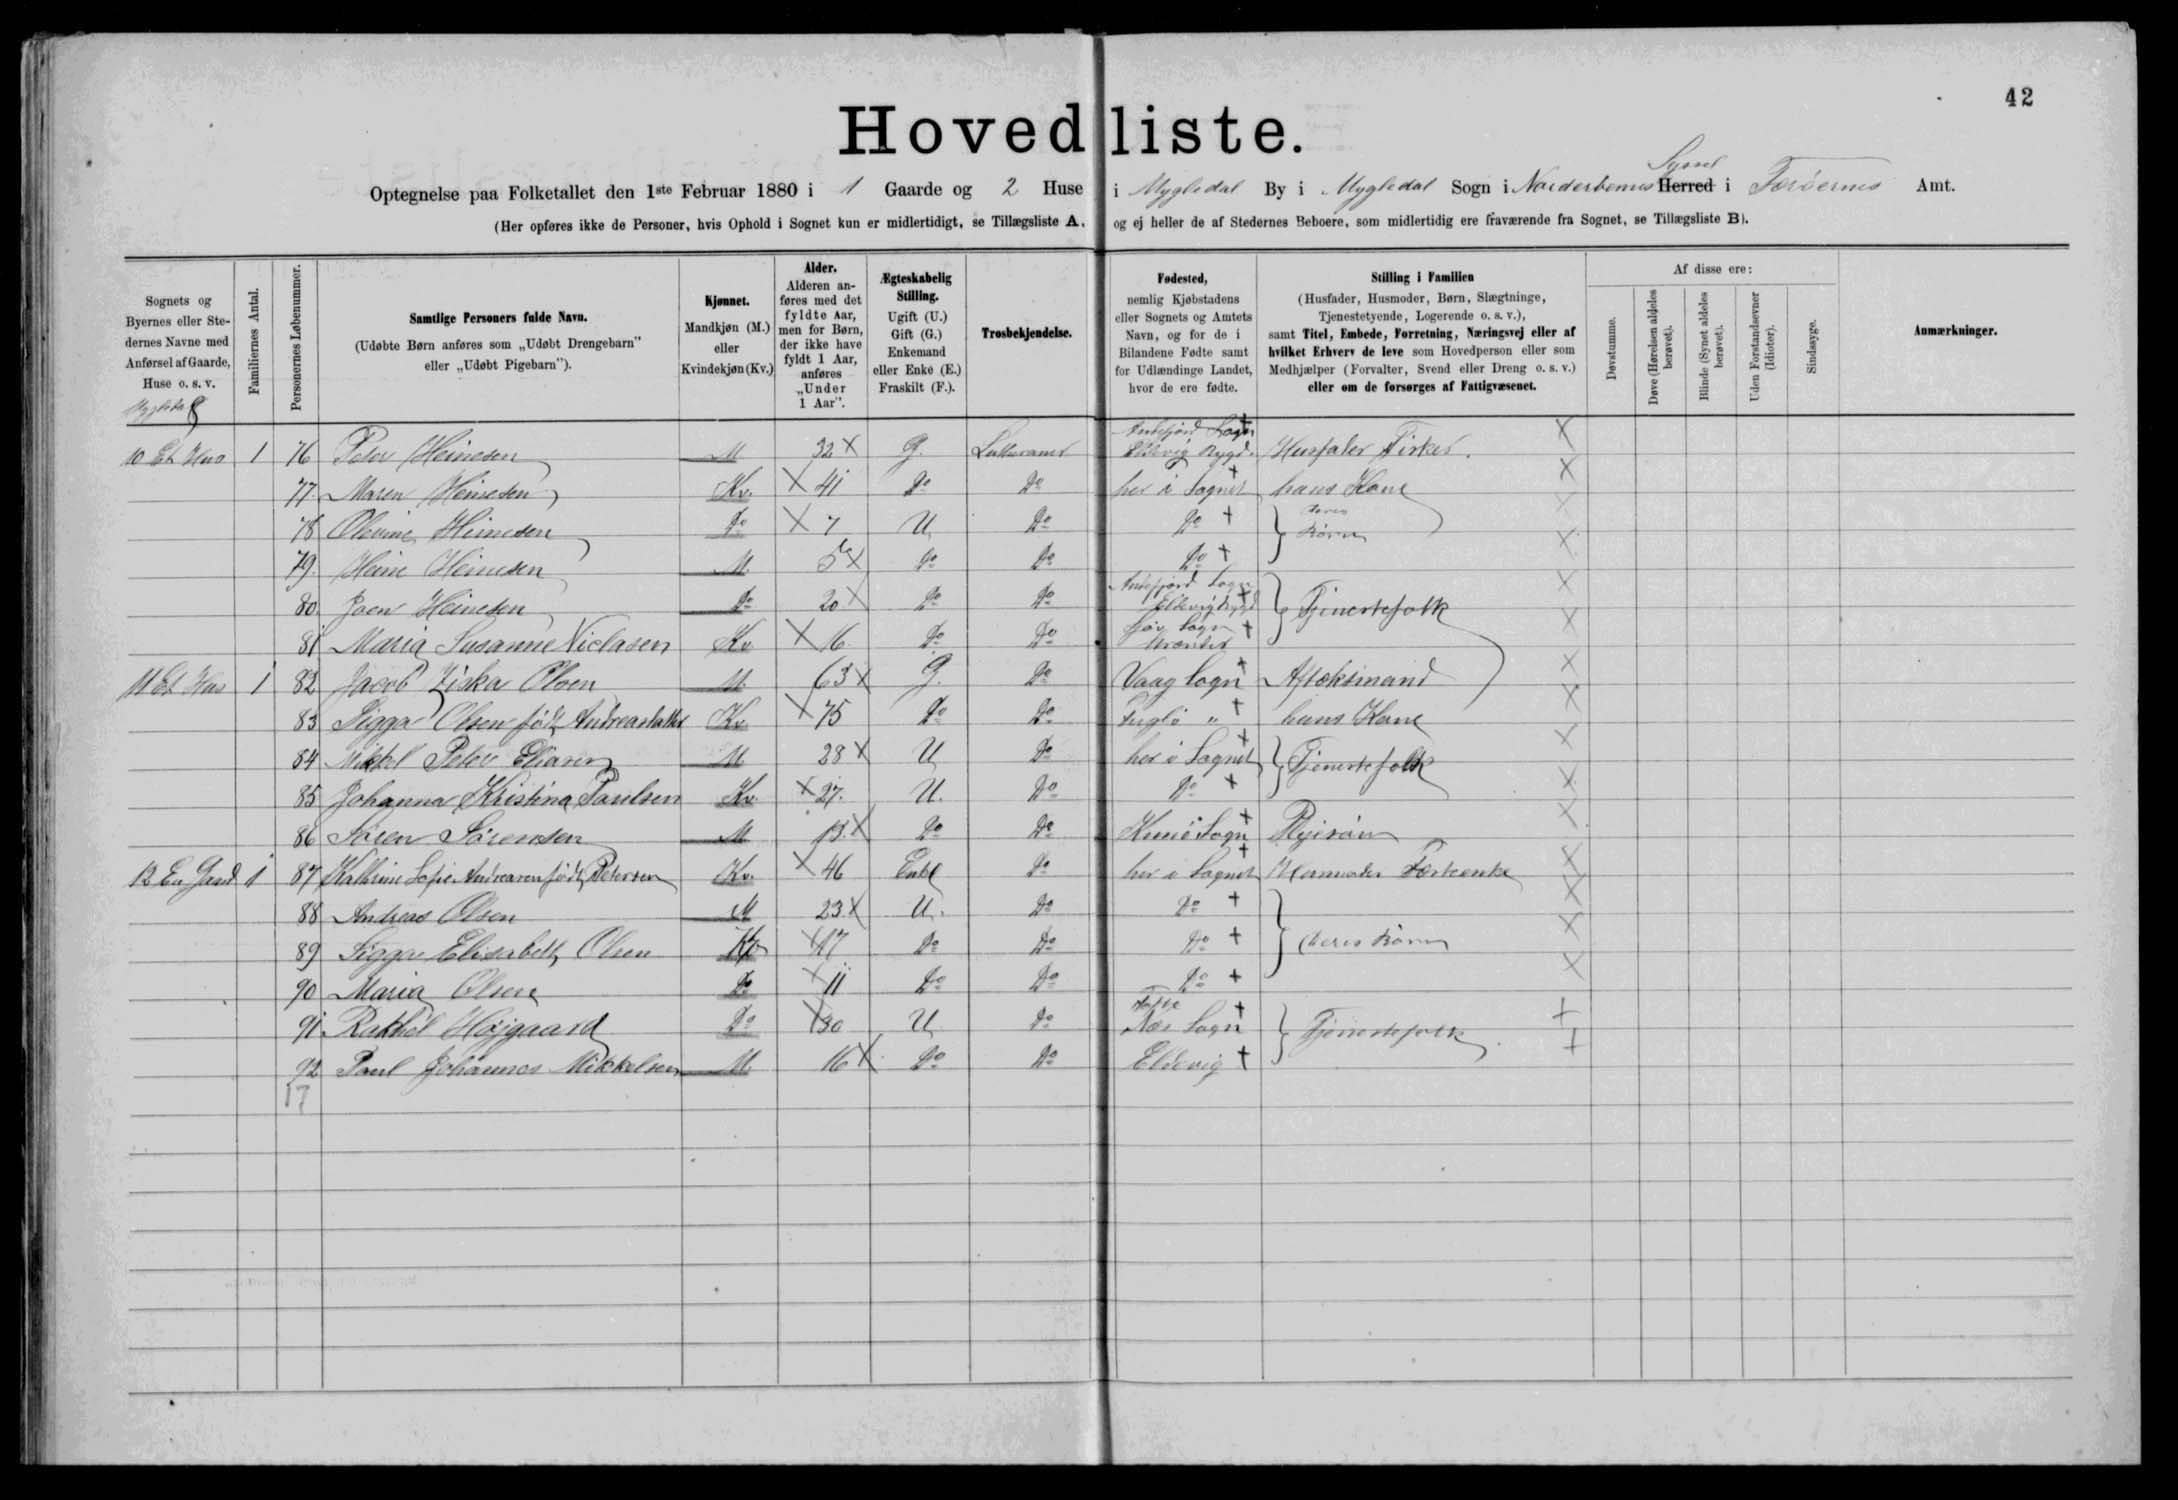 42
Hovedliste.
Optegnelse paa Folketallet den 1ste Februar 1880 i 1 Gaarde og 2 Huse i Mygledal By i Mygledal Sogn i Norderøernes Herred Syssel i Færøernes Amt.
(Her opføres ikke de Personer, hvis Ophold i Sognet kun er midlertidigt, se Tillægsliste A, og ej heller de af Stedernes Beboere, som midlertidig ere fraværende fra Sognet, se Tillægsliste B).
Sognets og Byernes eller Stedernes Navne med Anførsel af Gaarde, Huse o. s. v.
Familiernes Antal.
Personernes Løbenummer.
Samtlige Personers fulde Navn.
(Udøbte Børn anføres som „Udøbt Drengebarn" eller „Udøbt Pigebarn").
Kjønnet.
Mandkjøn (M.) eller Kvindekjøn (Kv.)
Alder.
Alderen anføres med det fyldte Aar, men for Børn, der ikke have fyldt 1 Aar, anføres „Under 1 Aar".
Ægteskabelig Stilling.
Ugift (U.) Gift (G.) Enkemand eller Enke (E.) Fraskilt (F.).
Trosbekjendelse.
Fødested,
nemlig Kjøbstadens eller Sognets og Amtets Navn, og for de i Bilandene Fødte samt for Udlændinge Landet, hvor de ere fødte.
Stilling i Familien
(Husfader, Husmoder, Børn, Slægtninge, Tjenestetyende, Logerende o. s. v.),
samt Titel, Embede, Forretning, Næringsvej eller af hvilket Erhverv de leve som Hovedperson eller som Medhjælper (Forvalter, Svend eller Dreng o. s. v.) eller om de forsørges af Fattigvæsenet.
Af disse ere:
Døvstumme.
Døve (Hørelsen aldeles berøvet).
Blinde (Synet aldeles berøvet).
Uden Forstandsevner (Idioter).
Sindssyge.
Anmærkninger.
Mygledal
10 Et Hus 1 76 Peter Heinesen M 32 X G. Lutheraner Sogn Eldevig Bygd + Husfader Fisker. X
77. Maren Heinesen Kv. X 41 Do Do her i Sognet + hans Kone X
78 Heinesen Do X 7 U Do Do + } deres Børn X
79. Heine Heinesen M. 5 X Do Do Do + X
80. Joen Heinesen Do 20 X Do Do Sogn Eldevig Bygd + } Tjenestefolk X
81 Maria Susanne Niclasen Kv X 16 Do Do Sogn + X
11 Et Hus 1 82 Jacob Ziska Olsen M. 63 X G. Do Vaag Sogn + Aftægtsmand X
83 Sigga Olsen født Andreasdatter Kv X 75 Do Do Fuglø " + hans Kone X
84 Mikkel Peter Eliasen M 28 X U Do her i Sognet + } Tjenestefolk X
85 Johanna Kristina Paulsen Kv. X 27. U. Do Do + X
86 Søren Sørensen M 13. X Do Do Kunø Sogn + Plejesøn X
12 En Gaard 1 87 Kathrine Sofie Andreasen født Petersen Kv. X 46 Enke Do her i Sognet + Husmoder Fæsteenke X
88 Andreas Olsen M 23 X U. Do Do + } deres Børn X
89 Sigga Elisabeth Olsen Kv X 17 Do Do Do + X
90 Maria Olsen Do X 11 Do Do Do + X
91 Rakkel Højgaard Do X 30 U Do Næs Sogn + } Tjenestefolk +
92 Paul Johannes Mikkelsen M. 16 X Do Do Eldevig + +
17